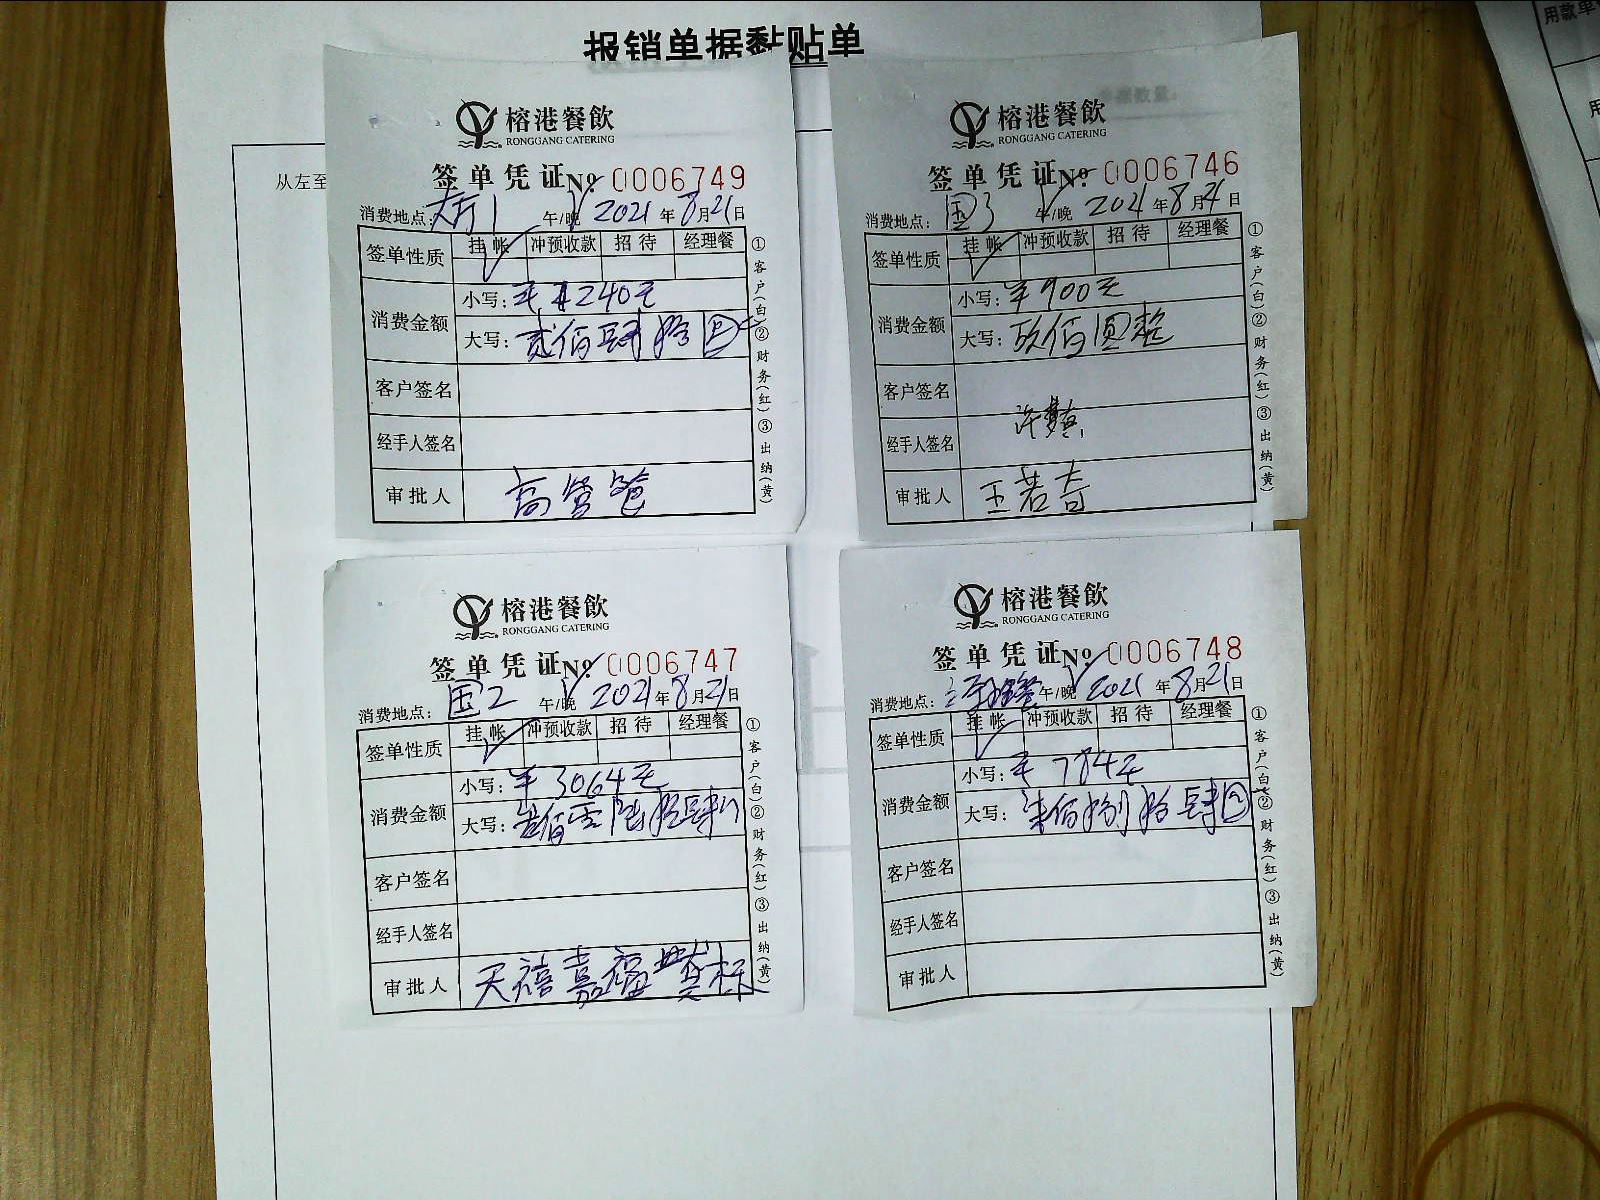 报销单据黏贴单
从左至
榕港餐飲
RONGGANG CATERING
签单凭证 No. 0006749
消费地点: 大厅1 午/晚 2021年8月21日
签单性质 挂帐 冲预收款 招待 经理餐
消费金额 小写: ¥240元
大写: 贰佰肆拾圆
客户签名
经手人签名
审批人
①客户(白)②财务(红)③出纳(黄)
榕港餐飲
RONGGANG CATERING
签单凭证 No. 0006746
消费地点: 国3 午/晚 2021年8月21日
签单性质 挂帐 冲预收款 招待 经理餐
消费金额 小写: ¥900元
大写: 玖佰圆整
客户签名
经手人签名
审批人 王若奇
①客户(白)②财务(红)③出纳(黄)
榕港餐飲
RONGGANG CATERING
签单凭证 No. 0006747
消费地点: 国2 午/晚 2021年8月21日
签单性质 挂帐 冲预收款 招待 经理餐
消费金额 小写: ¥3064元
大写: 佰零陆拾肆
客户签名
经手人签名
审批人 天禧嘉福
①客户(白)②财务(红)③出纳(黄)
榕港餐飲
RONGGANG CATERING
签单凭证 No. 0006748
消费地点: 午/晚 2021年8月21日
签单性质 挂帐 冲预收款 招待 经理餐
消费金额 小写: ¥784元
大写: 柒佰捌拾肆圆
客户签名
经手人签名
审批人
①客户(白)②财务(红)③出纳(黄)
用款单
用